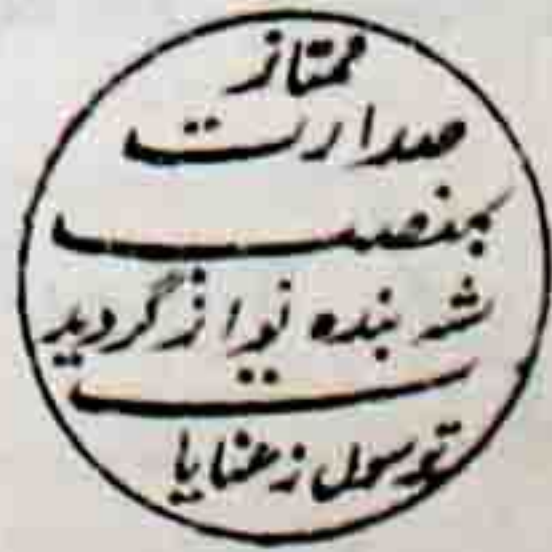 ممتاز
صدارت
بمنصب
شه بنده نواز گردید
ز عنایات